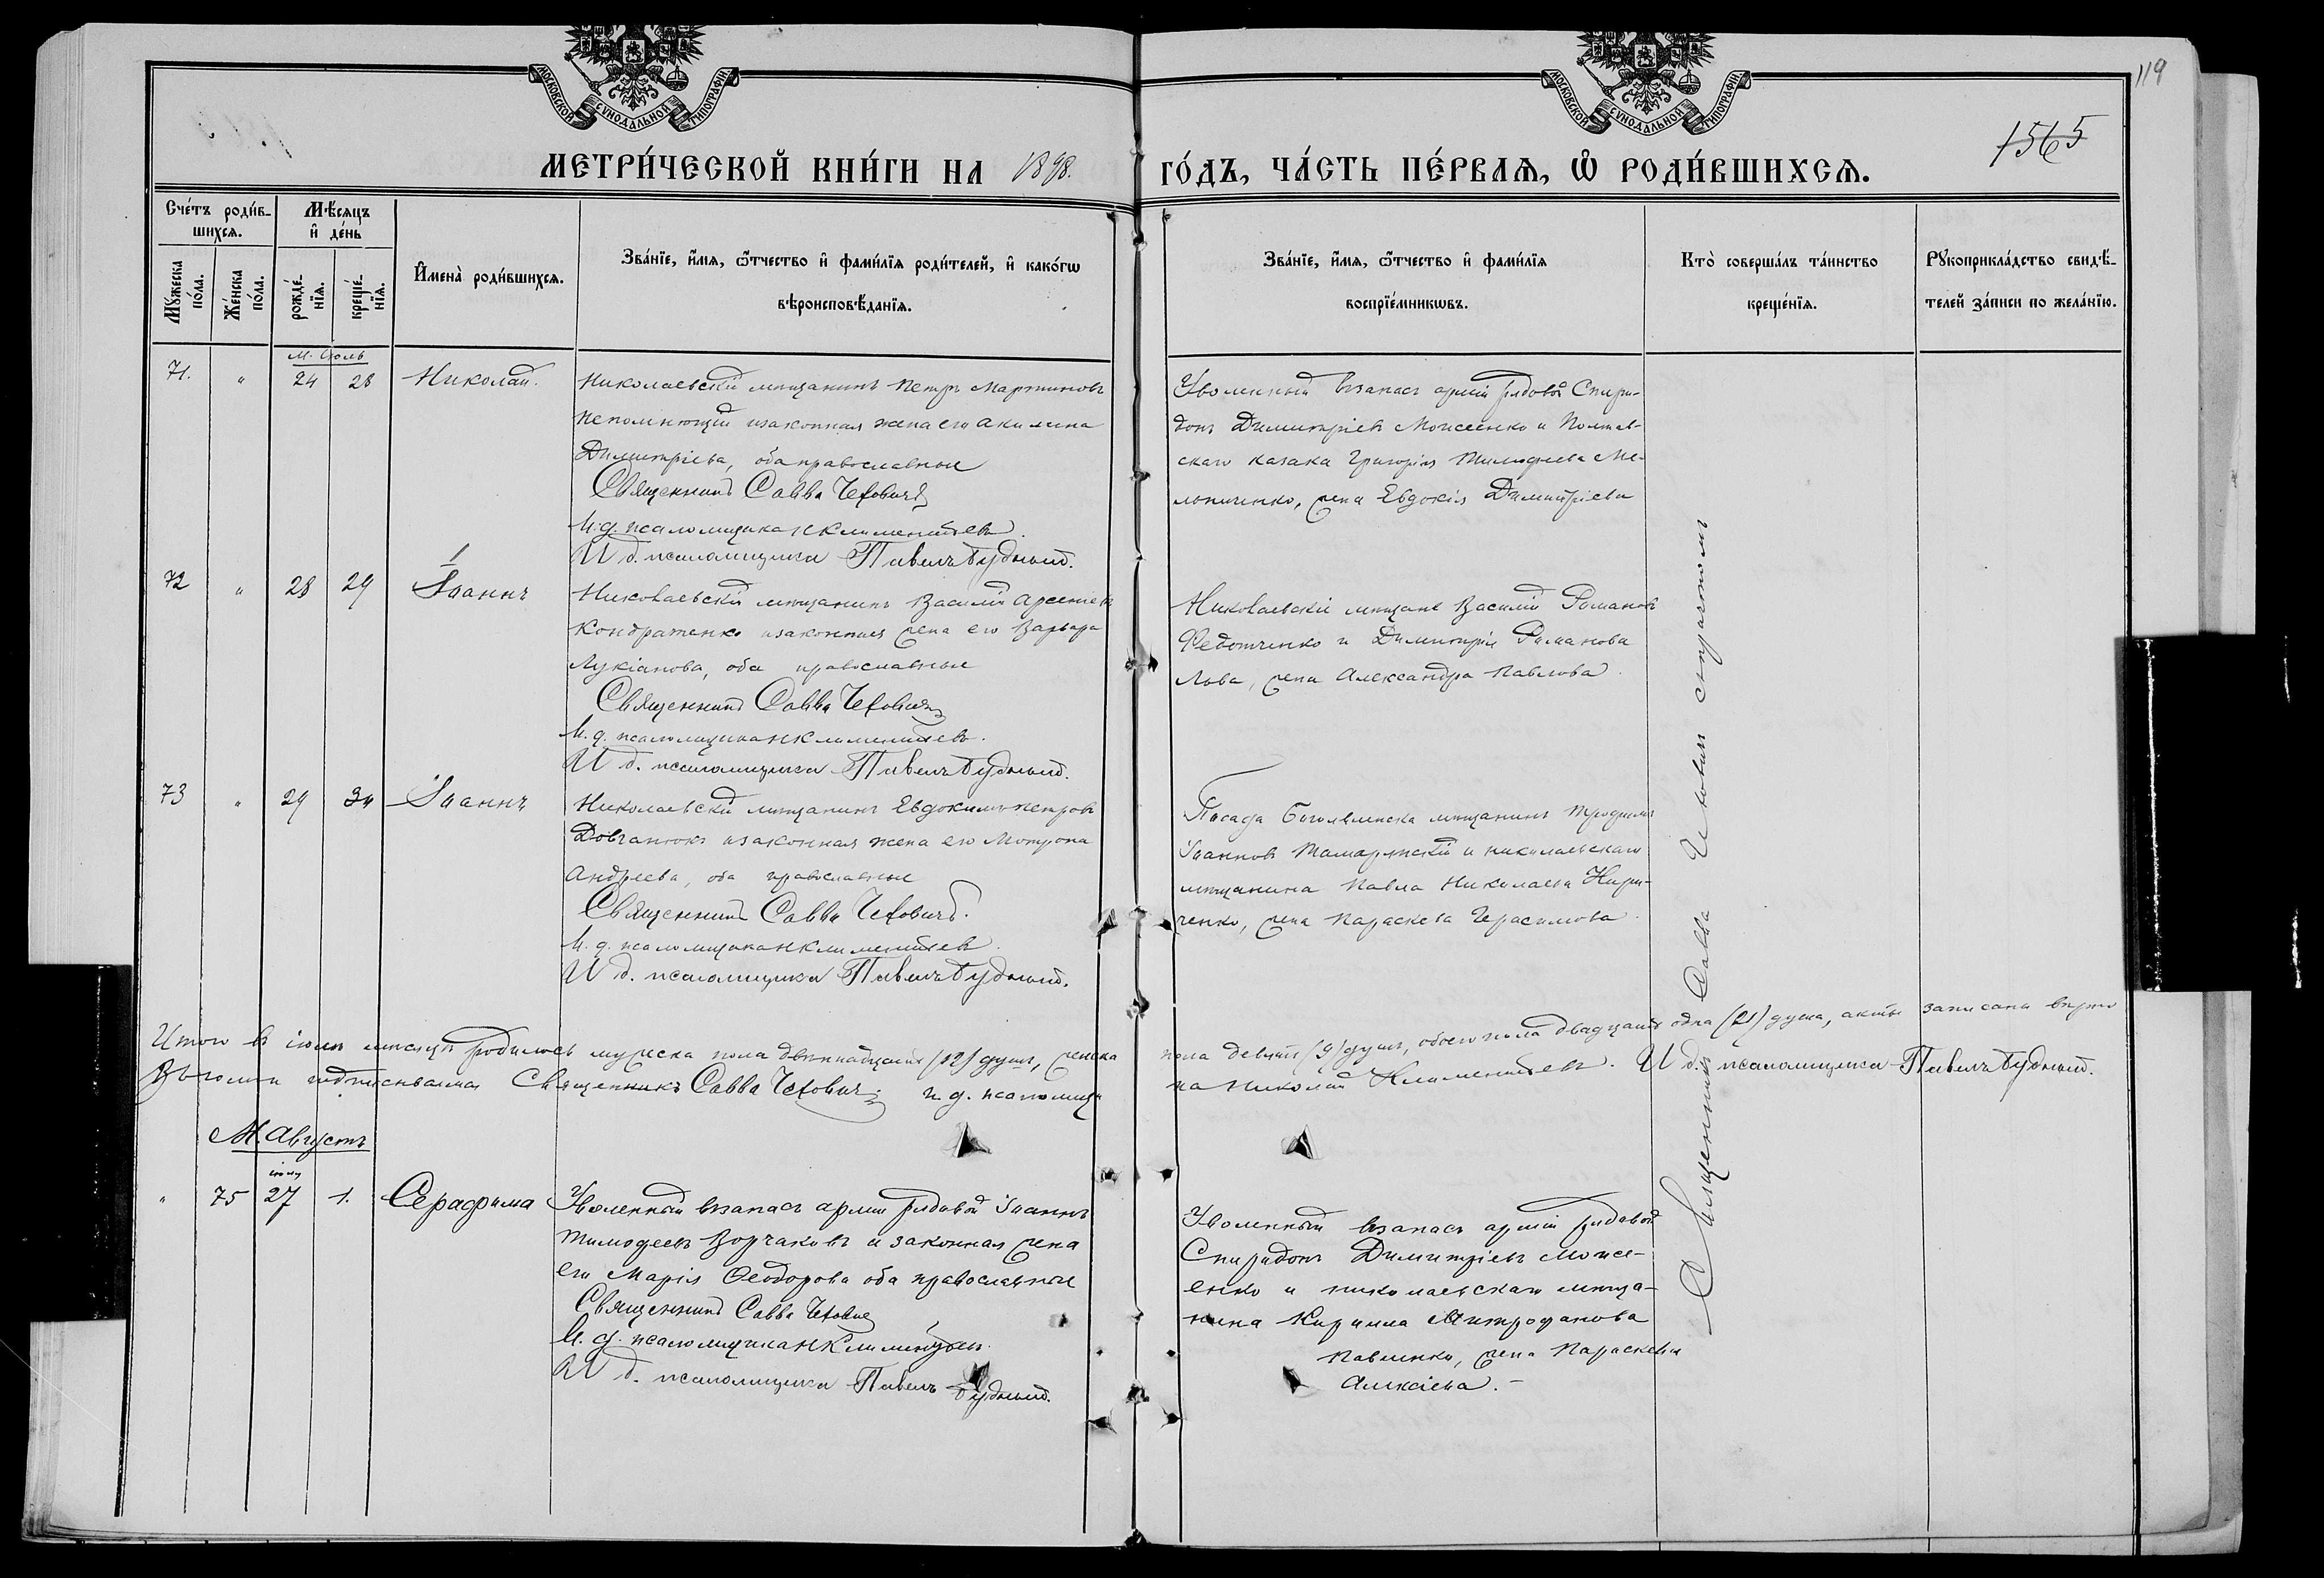 119
1565
МОСКОВСКОЙ СѴНОДАЛЬНОЙ ТИПОГРАФІИ
МОСКОВСКОЙ СѴНОДАЛЬНОЙ ТИПОГРАФІИ
МЕТРИ́ЧЕСКОЙ КНИ́ГИ НА 1898. ГО́ДЪ, ЧА́СТЬ ПЕ́РВАѦ, Ѡ҆ РОДИ́ВШИХСѦ.
Сче́тъ роди́в-
шихсѧ.
Мꙋ́жеска
по́ла.
Же́нска
по́ла.
Мѣ́сѧцъ
и҆ де́нь
рожде́-
нїѧ.
креще́-
нїѧ.
И҆мена̀ роди́вшихсѧ.
Зва́нїе, и҆́мѧ, ѻ҆́тчество и҆ фами́лїѧ роди́телей, и҆ како́гѡ
вѣроисповѣ́данїѧ.
Зва́нїе, и҆́мѧ, ѻ҆́тчество и҆ фами́лїѧ
воспрїе́мникѡвъ.
Кто̀ соверша́лъ та́инство
креще́нїѧ.
Рꙋкоприкла́дство свидѣ́-
телей за́писи по жела́нїю.
М. Іюль
71. " 24 28 Николай.
Николаевскій мѣщанинъ Петръ Мартиновъ
Непомнющій и законная жена его Акилина
Димитріева, оба православные
Священникъ Савва Чехович
И. д. псаломщика Н Климентьевъ.
И д. псаломщика Павелъ Будный.
Уволенный въ запасъ арміи рядовой Спири-
донъ Димитріевъ Моисеенко и Полтав-
скаго казака Григорія Тимофеева Ме-
льниченко, жена Евдокія Димитріева
72 " 28 29 Іоаннъ
Николаевскій мѣщанинъ Василій Арсеніевъ
Кондратенко и законная жена его Варвара
Лукіанова, оба православные
Священникъ Савва Чехович
И. д. псаломщика Н Климентьевъ.
И д. псаломщика Павелъ Будный.
Николаевскіе мѣщане Василій Романовъ
Федотченко и Димитрія Романова
Льва, жена Александра Павлова.
73 " 29 30 Іоаннъ
Николаевскій мѣщанинъ Евдокимъ Петровъ
Довганюкъ и законная жена его Мотрона
Андреева, оба православные
Священникъ Савва Чехович.
И. д. псаломщика Н Климентьевъ.
И д. псаломщика Павелъ Будный.
Посада Богоявленска мѣщанинъ Трофимъ
Іоанновъ и николаевскаго
мѣщанина Павла Николаева Кири-
ченко, жена Параскева Герасимова.
Итого въ іюлѣ мѣсяцѣ родилось мужеска пола двѣнадцать (12) душъ, женска пола девять (9) душъ, обоего пола двадцать одна (21) душа, акты записана вѣрно
В томъ и подписываемся Священникъ Савва Чехович; и. д. псаломщи на Николай Климентьевъ. И д. псаломщика Павелъ Будный.
М. Августъ
іюля
" 75 27 1. Серафима
Уволенный въ запасъ арміи рядовой Іоаннъ
Тимофеевъ Ворчаковъ и законная жена
его Марія Ѳеодорова оба православные
Священникъ Савва Чехович
И. д. псаломщика Н Климентьевъ.
И д. псаломщика Павелъ Будный.
Уволенный въ запасъ арміи рядовой
Спиридонъ Димитріевъ Моисе-
енко и николаевскаго мѣща-
нина Кирилла Митрофанова
Павленко, жена Параскева
Алексіева.
Священникъ Савва Чехович съ псаломщикомъ